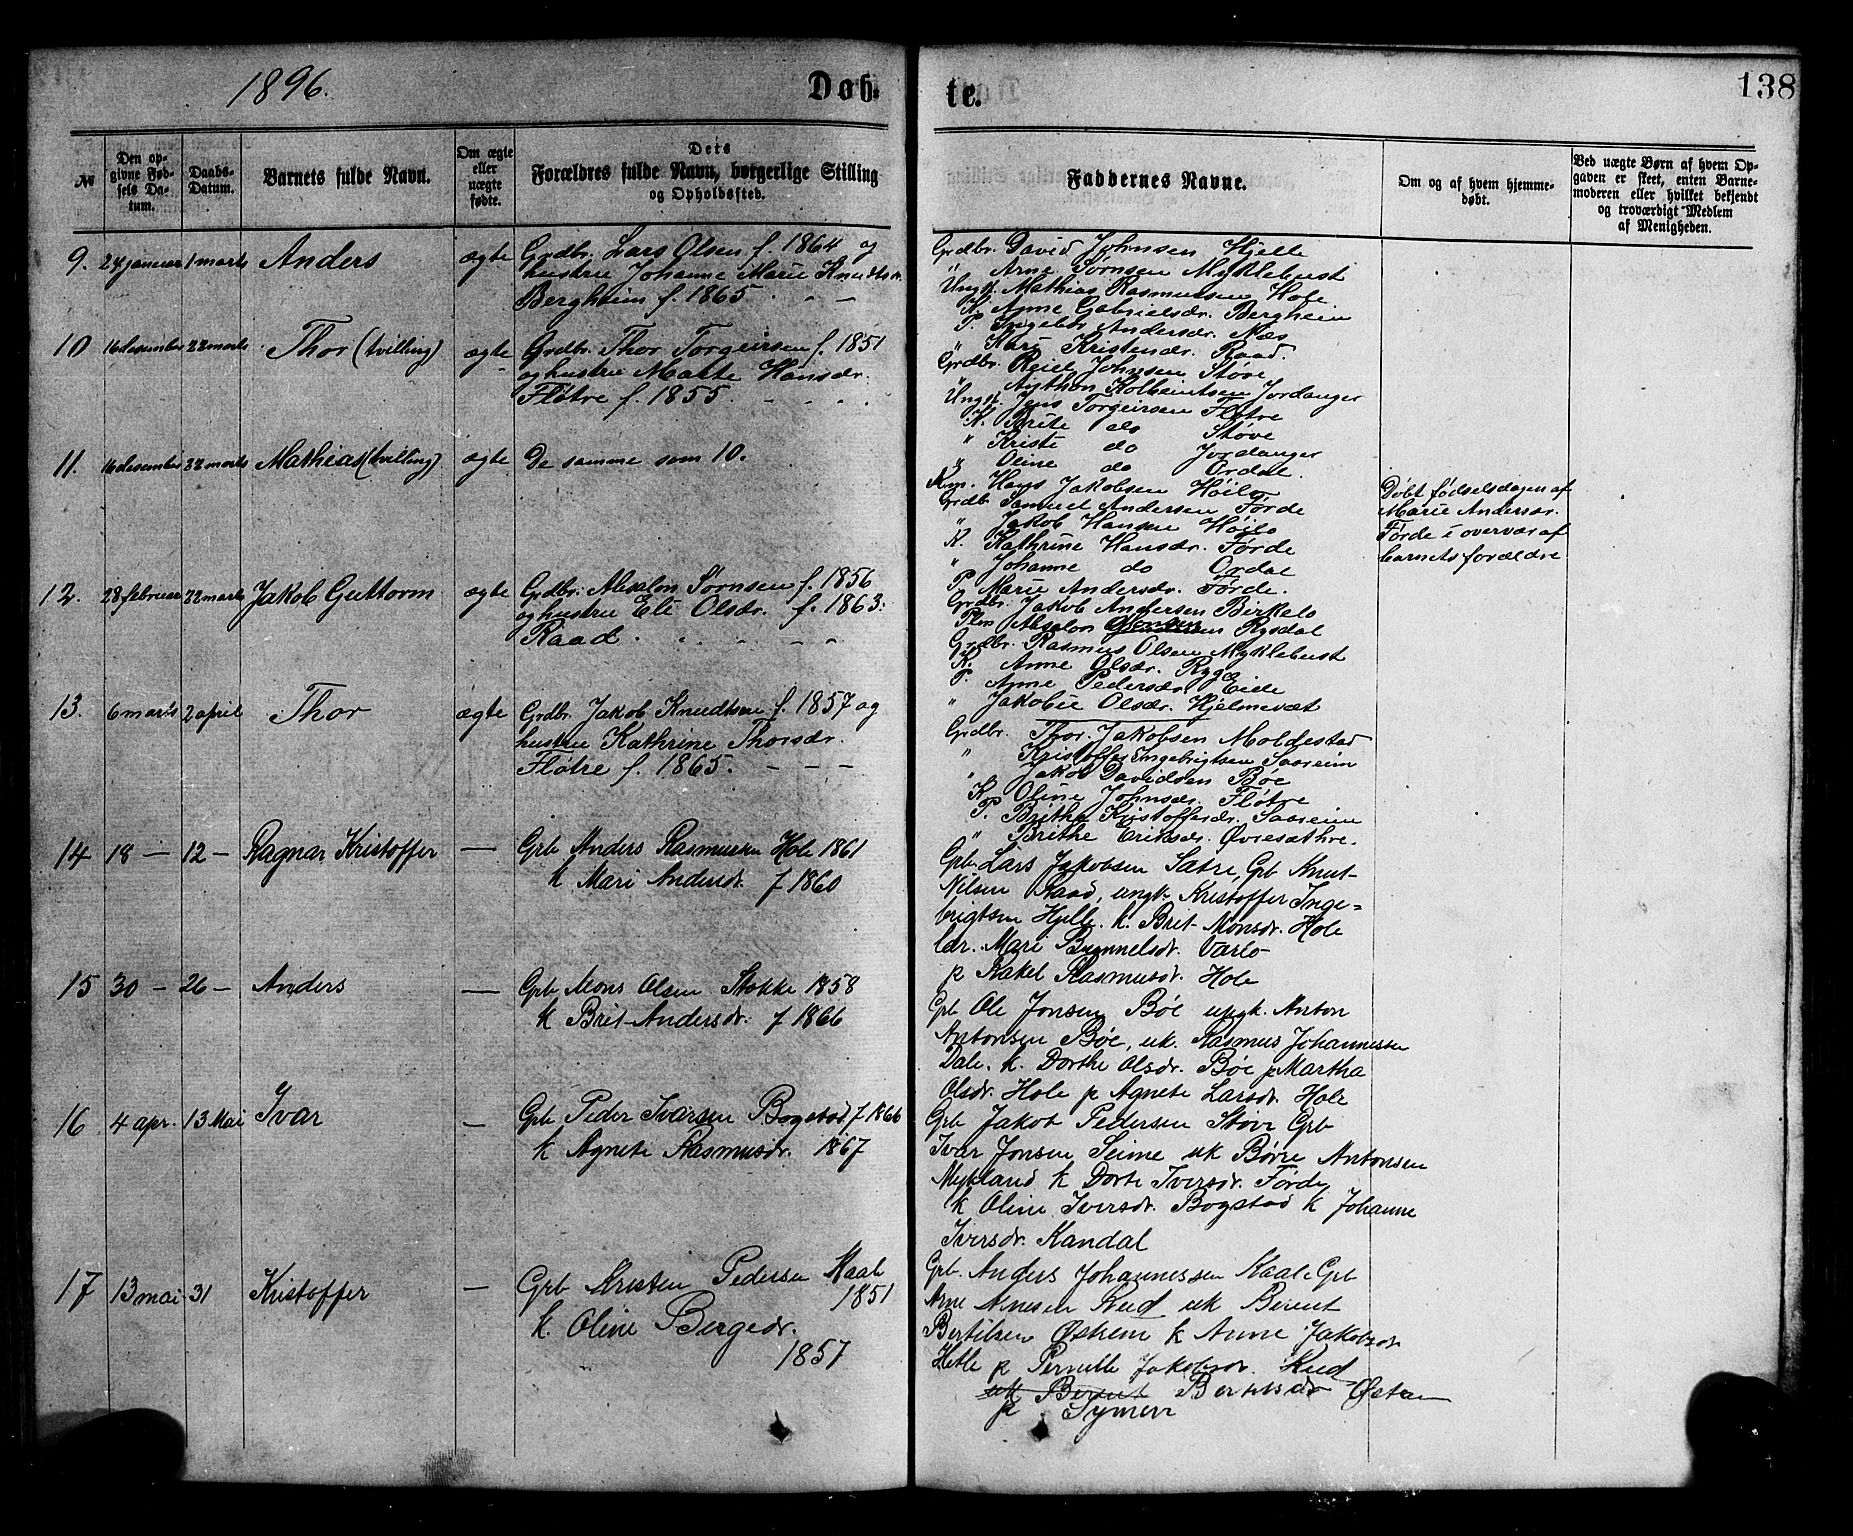 1896.
Døb-
te.
138
№
Den op-
givne Fød-
sels Da-
tum.
Daabs-
Datum.
Barnets fulde Navn.
Om ægte
eller
uægte
fødte.
Dets
Forældres fulde Navn, borgerlige Stilling
og Opholdssted.
Faddernes Navne.
Om og af hvem hjemme-
døbt.
Ved uægte Børn af hvem Op-
gaven er skeet, enten Barne-
moderen eller hvilket bekjendt
og troværdigt Medlem
af Menigheden.
9. 24 januar 1 marts Anders ægte Grdbr. Lars Olsen f. 1864 og
hustru Johanne Marie Knudtsdr.
Bergheim f. 1865
Grdbr. David Johnsen Hjelle
" Arne Sørnsen Myklebust
Ungk. Mathias Rasmussen Hole.
K. Anne Gabrielsdr. Bergheim
P. Ingebor Andersdr. Næs
" Kari Kristendr. Raad.
10 16 desember 22 marts Thor (tvilling) ægte Grdbr. Thor Torgeirsen f. 1851
og hustru Malte Hansdr.
Fløtre f. 1855.
Grdbr. Reiel Johnsen Støve
" Anthon Kolbeintsen Jordanger
Ungk. Jens Torgeirsen Fløtre
K. Brite do Støve
" Kriste do Jordanger
" Oline do Ordal.
11. 16 desember 22 marts Mathias (tvilling) ægte De samme som 10.
Hans Jakobsen Høilo
Grdbr. Samuel Andersen Førde
" Jakob Hansen Høilo
K. Kathrine Hansdr. Førde
" Johanne do Ordal
P. Marie Andersdr. Førde.
Døbt fødselsdagen af
Marie Andersdr.
Førde i overvær af
barnets forældre
12. 28 februar 22 marts Jakob Guttorm ægte Grdbr. Absalon Sørnsen f. 1856
og hustru Eli Olsdr. f. 1863.
Raad
Grdbr. Jakob Andersen Birkelo
Absalon Rysdal
Grdbr. Rasmus Olsen Myklebust
K. Anne Olsdr. Rygg
P. Anne Pedersdr. Eide
" Jakobie Olsdr. Hjelmevæt
13. 6 marts 2 april Thor ægte Grdbr. Jakob Knudtsen f. 1857 og
hustru Kathrine Thorsdr.
Fløtre f. 1865.
Grdbr. Thor Jakobsen Moldestad
" Kristoffer Ingebrigtsen Saareim
" Jakob Davidsen Bøe
K. Oline Johnsdr. Fløtre
P. Brithe Kristoffersdr. Saareim
" Brithe Eriksdr. Øvresathre.
14 18 — 12 — Ragnar Kristoffer — Grb Anders Rasmussen Hole 1861
k Mari Andersdr f 1860
Grb. Lars Jakobsen Sætre, Grb Knut
Nilsen Raad, ungk. Kristoffer Inge=
brigtsen Hjelle. k. Brit Monsdr. Hole
Mari Varlo
p Rakel Rasmusdr. Hole
15 30 — 26 — Anders — Grb Mons Olsen Stokke 1858
k Brit Andersdr. f 1866
Grb Ole Jonsen Bøe ungk. Anton
Antonsen Bøe, uk. Rasmus Johannessen
Dale. k. Dorthe Olsdr. Bøe p Martha
Olsdr. Hole p Agnete Larsdr. Hole
16 4 apr. 13 Mai Ivar — Grb Peder Ivarsen Bogstad f 1866
k Agnete Rasmusdr. 1867
Grb Jakob Pedersen Støve Grb
Ivar Jonsen Seime uk Børre Antonsen
Mykland k Dorte Iversdr. Førde
k Oline Iversdr. Bogstad k Johanne
Iversdr. Kandal
17 13 mai 31 Kristoffer — Grb Kristen Pedersen Kaal
1851
k. Oline Bergedr.
1857
Grb. Anders Johannessen Kaal Grb
Arne Arnesen Rud uk Berent
Bertilsen Østrem k Anne Jakobsdr
Hetle p Pernille Jakobsdr. Rud
uk Berent Bertelsdr
p. Symeri